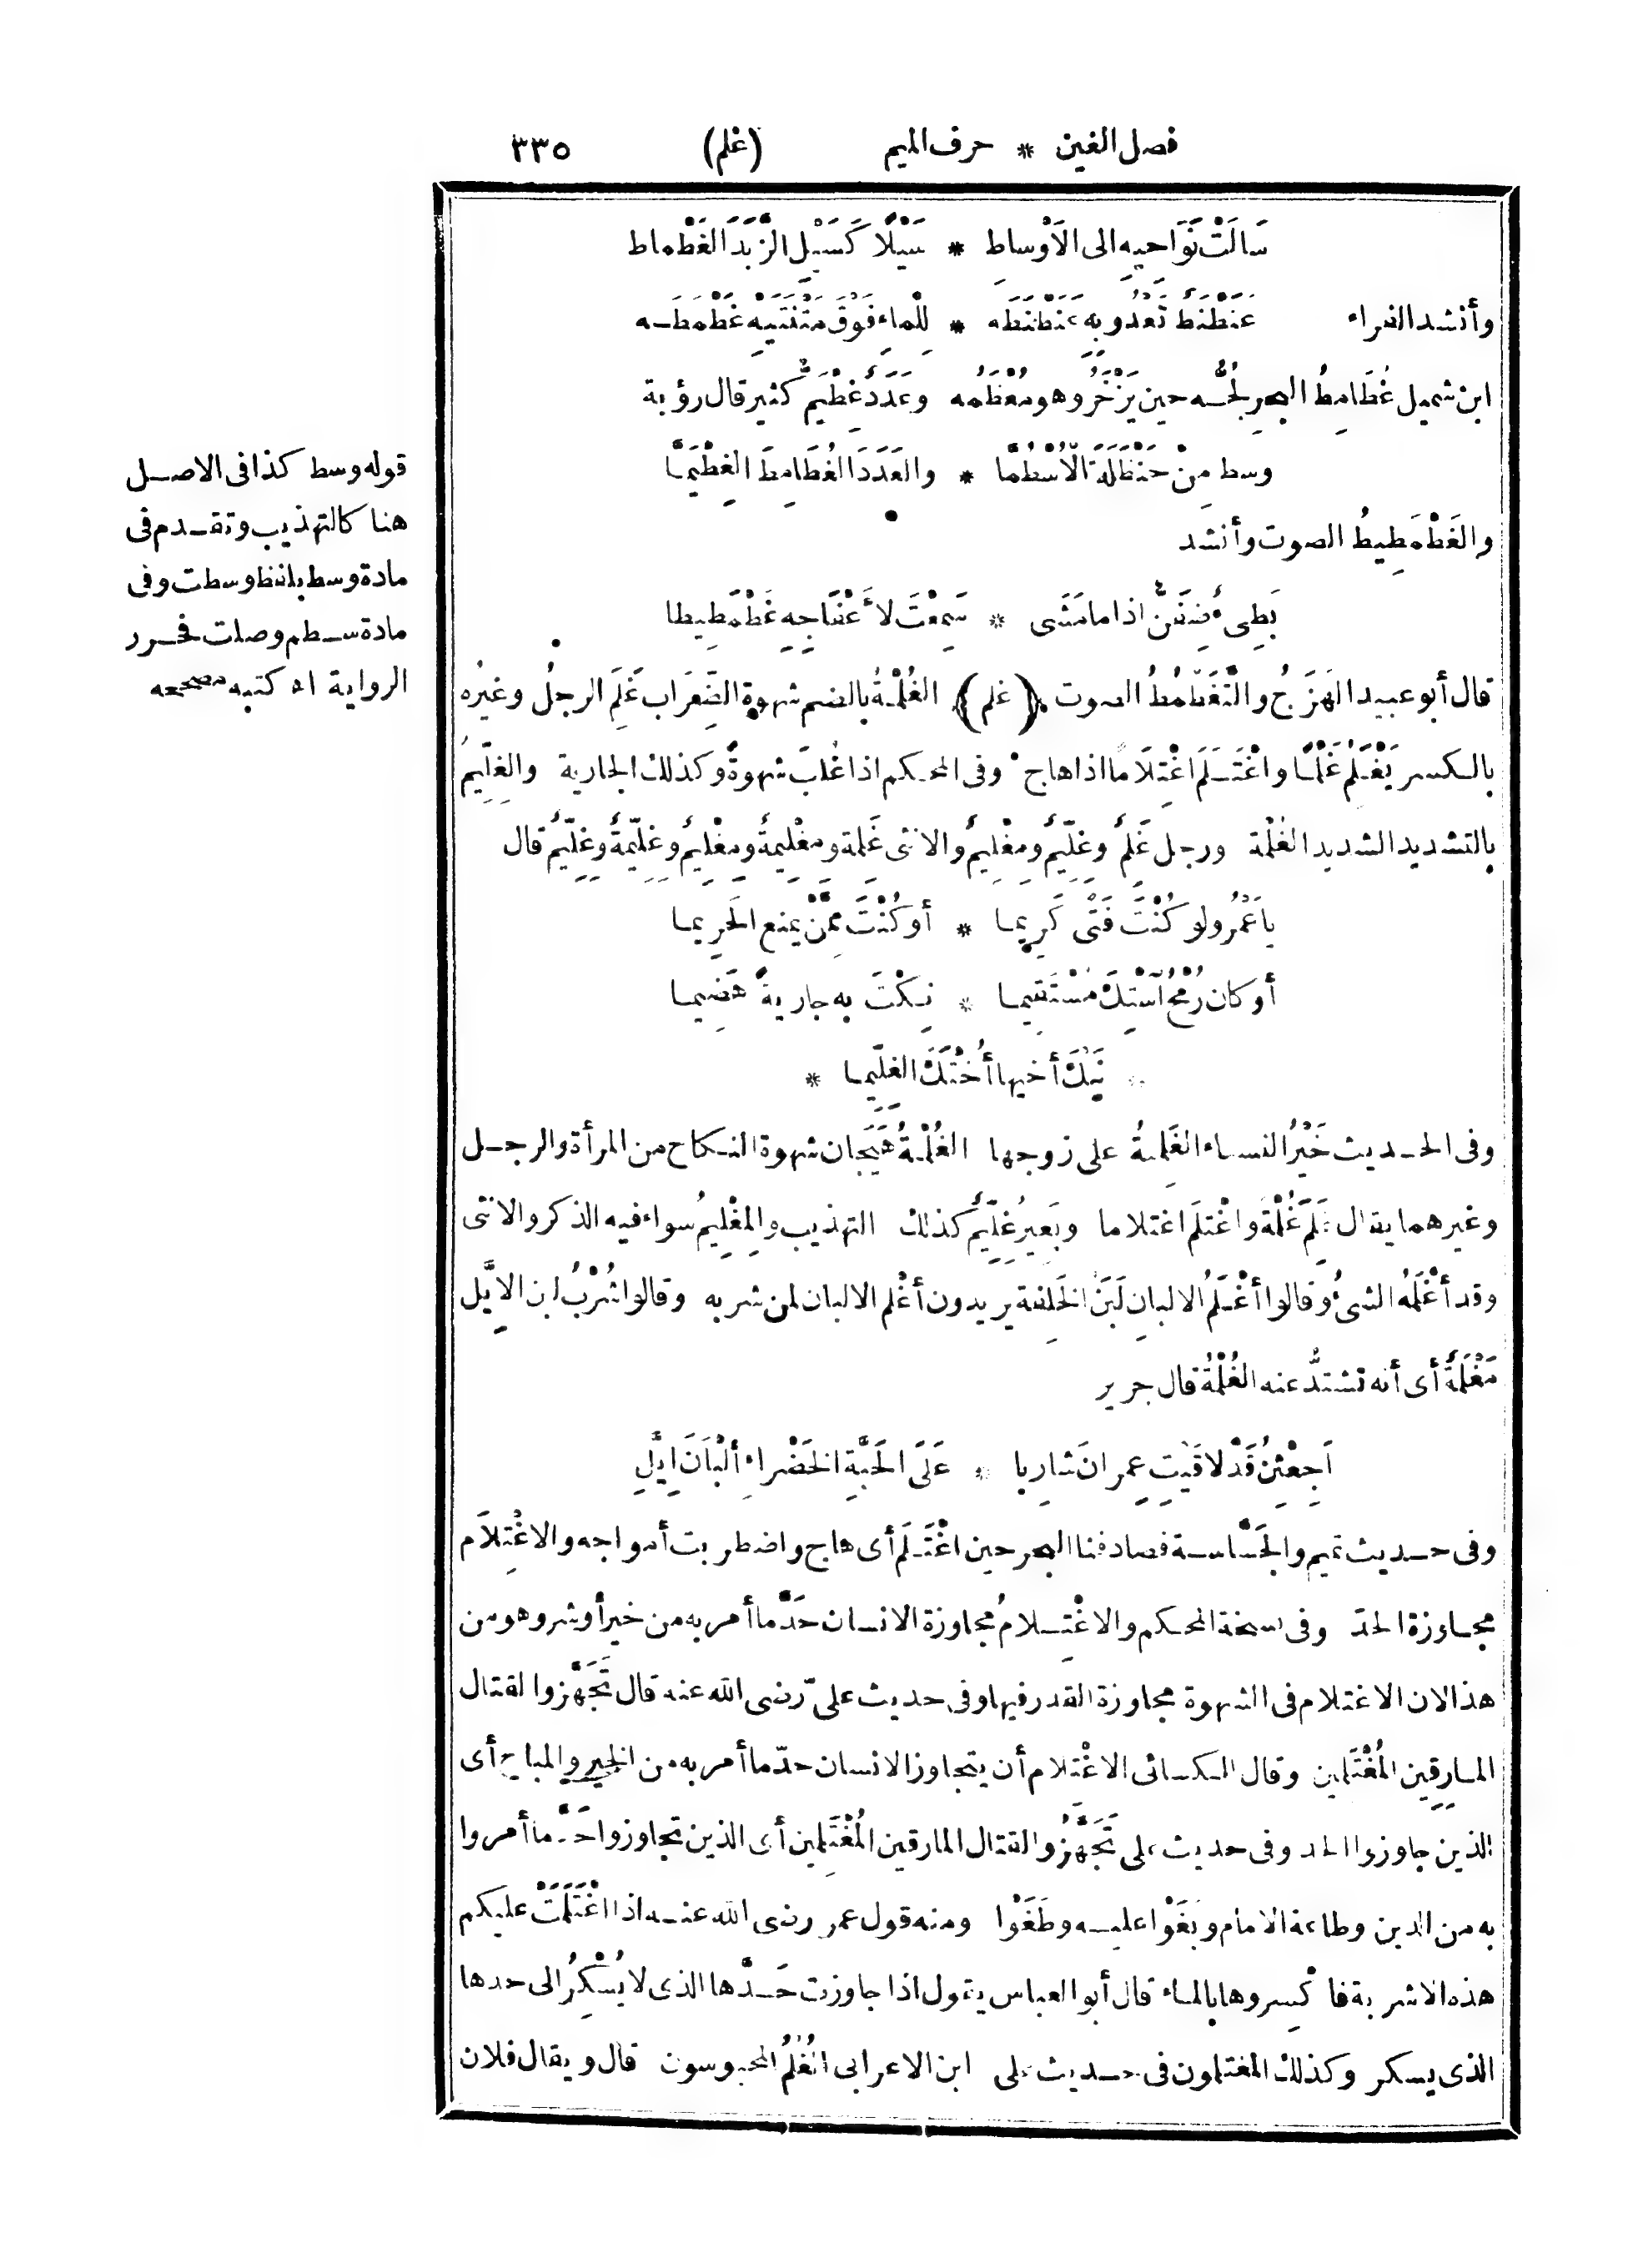 فصل الغين * حرف الميم (غلم) ٣٣٥
سَالَتْ نَوَاحِيهِ الى الاَوْساطِ * سَيْلًا كَسَيْلِ الزَّبَدَ الغَطْماط
وأنشد الفراء عَنَطْنَطٌ تَعْدُو بِهِ عَنَطْنَطَه * لِلْماءِ فَوْقَ مَتْنَتَيْهِ غَطْمَطَه
ابن شميل غُطَامِطُ البحرِ لُجُّه حين يَزْخَرُ وهو مُعْظَمُه وعَدَدٌ غِطْيَمٌّ كثير قال رؤبة
وسط مِنْ حَنْظَلَةَ الْاُسْطُمَّا * والعَدَدَ الغُطَامِطَ الغِطْيَمَّا
والغَطْمَطِيطُ الصوت وأنشد
بَطِىءٌ ضِفَنٌّ اذا ما مَشَى * سَمِعْتَ لأَعْفَاجِهِ غَطْمَطِيطا
قال أبو عبيد الهَزَجُ والتَّغَطْمُطُ الصوت (غلم) الغُلْمَةُ بالضم شهوة الضِّرَاب غَلِمَ الرجلُ وغيرُه
بالكسر يَغْلَمُ غَلَمًا واغْتَلَمَ اغْتِلَامًا اذا هاج وفى المحكم اذا غُلِبَ شهوةً وكذلك الجارية والغِلِّيمُ
بالتشديد الشديد الغُلْمة ورجل غَلِمٌ وغِلِّيمٌ ومِغْلِيمٌ والانثى غَلِمة ومِغْلِيمةٌ ومِغْلِيمٌ وغِلِّيمَةٌ وغِلِّيمٌ قال
يا عَمْرُو لو كُنْتَ فَتًى كَرِيما * أو كُنْتَ مِمَّنْ يمنع الحَرِيما
أو كان رُمْحُ اسْتِكَ مُسْتَقِيما * نِكْتَ به جاريةً هَضِيما
* نَيْكَ أخيها أُخْتَكَ الغِلِّيما *
وفى الحديث خَيْرُ النساء الغَلِمةُ على زوجها الغُلْمةُ هَيَجَان شهوة النكاح من المرأة والرجل
وغيرهما يقال غَلِمَ غُلْمَةً واغْتَلَمَ اغتلاما وبَعِيرٌ غِلِّيمٌ كذلك التهذيب والمِغْلِيمُ سواء فيه الذكر والانثى
وقد أَغْلَمَهُ الشىءُ وقالوا أَغْلَمُ الالبانِ لَبَنُ الخَلِفة يريدون أَغْلَم الالبان لمن شربه وقالوا شُرْبُ لبن الاِيَّل
مَغْلَمَةٌ أى أنه تشتدُّ عنه الغُلْمَةُ قال جرير
اَجِعْثِنُ قَدْ لاقَيْتِ عِمرانَ شارِبا * عَلَى الحَبَّةِ الخَضْراءِ أَلْبَانَ اِيَّلِ
وفى حديث تميم والجَسَّاسة فصادفنا البحر حين اغْتَلَمَ أى هاج واضطربت أمواجه والاغْتِلَام
مجاوزة الحدّ وفى نسخة المحكم والاغْتِلامُ مجاوزة الانسان حَدَّ ما أمر به من خير أو شر وهو من
هذا لان الاغتلام فى الشهوة مجاوزة القدر فيها وفى حديث علىّ رضى الله عنه قال تَجَهَّزوا لقتال
المارِقِين المُغْتَلِمين وقال الكسائى الاغْتلام أن يتجاوز الانسان حدّ ما أمر به من الخير والمباح أى
الذين جاوزوا الحد وفى حديث على تَجَهَّزُوا لقتال المارقين المُغْتَلِمين أى الذين تجاوزوا حَدَّ ما أمروا
به من الدين وطاعة الامام وبَغَوْا عليه وطَغَوْا ومنه قول عمر رضى الله عنه اذا اغْتَلَمَتْ عليكم
هذه الاشربة فاكْسِروها بالماء قال أبو العباس يقول اذا جاوزت حَدَّها الذى لا يُسْكِرُ الى حدها
الذى يسكر وكذلك المغتلمون فى حديث على ابن الاعرابى الغُلُمُ المحبوسون قال ويقال فلان
قوله وسط كذا فى الاصل
هنا كالتهذيب وتقدم فى
مادة وسط بلفظ وسطت وفى
مادة سطم وصلت فحرر
الرواية اه كتبه مصححه